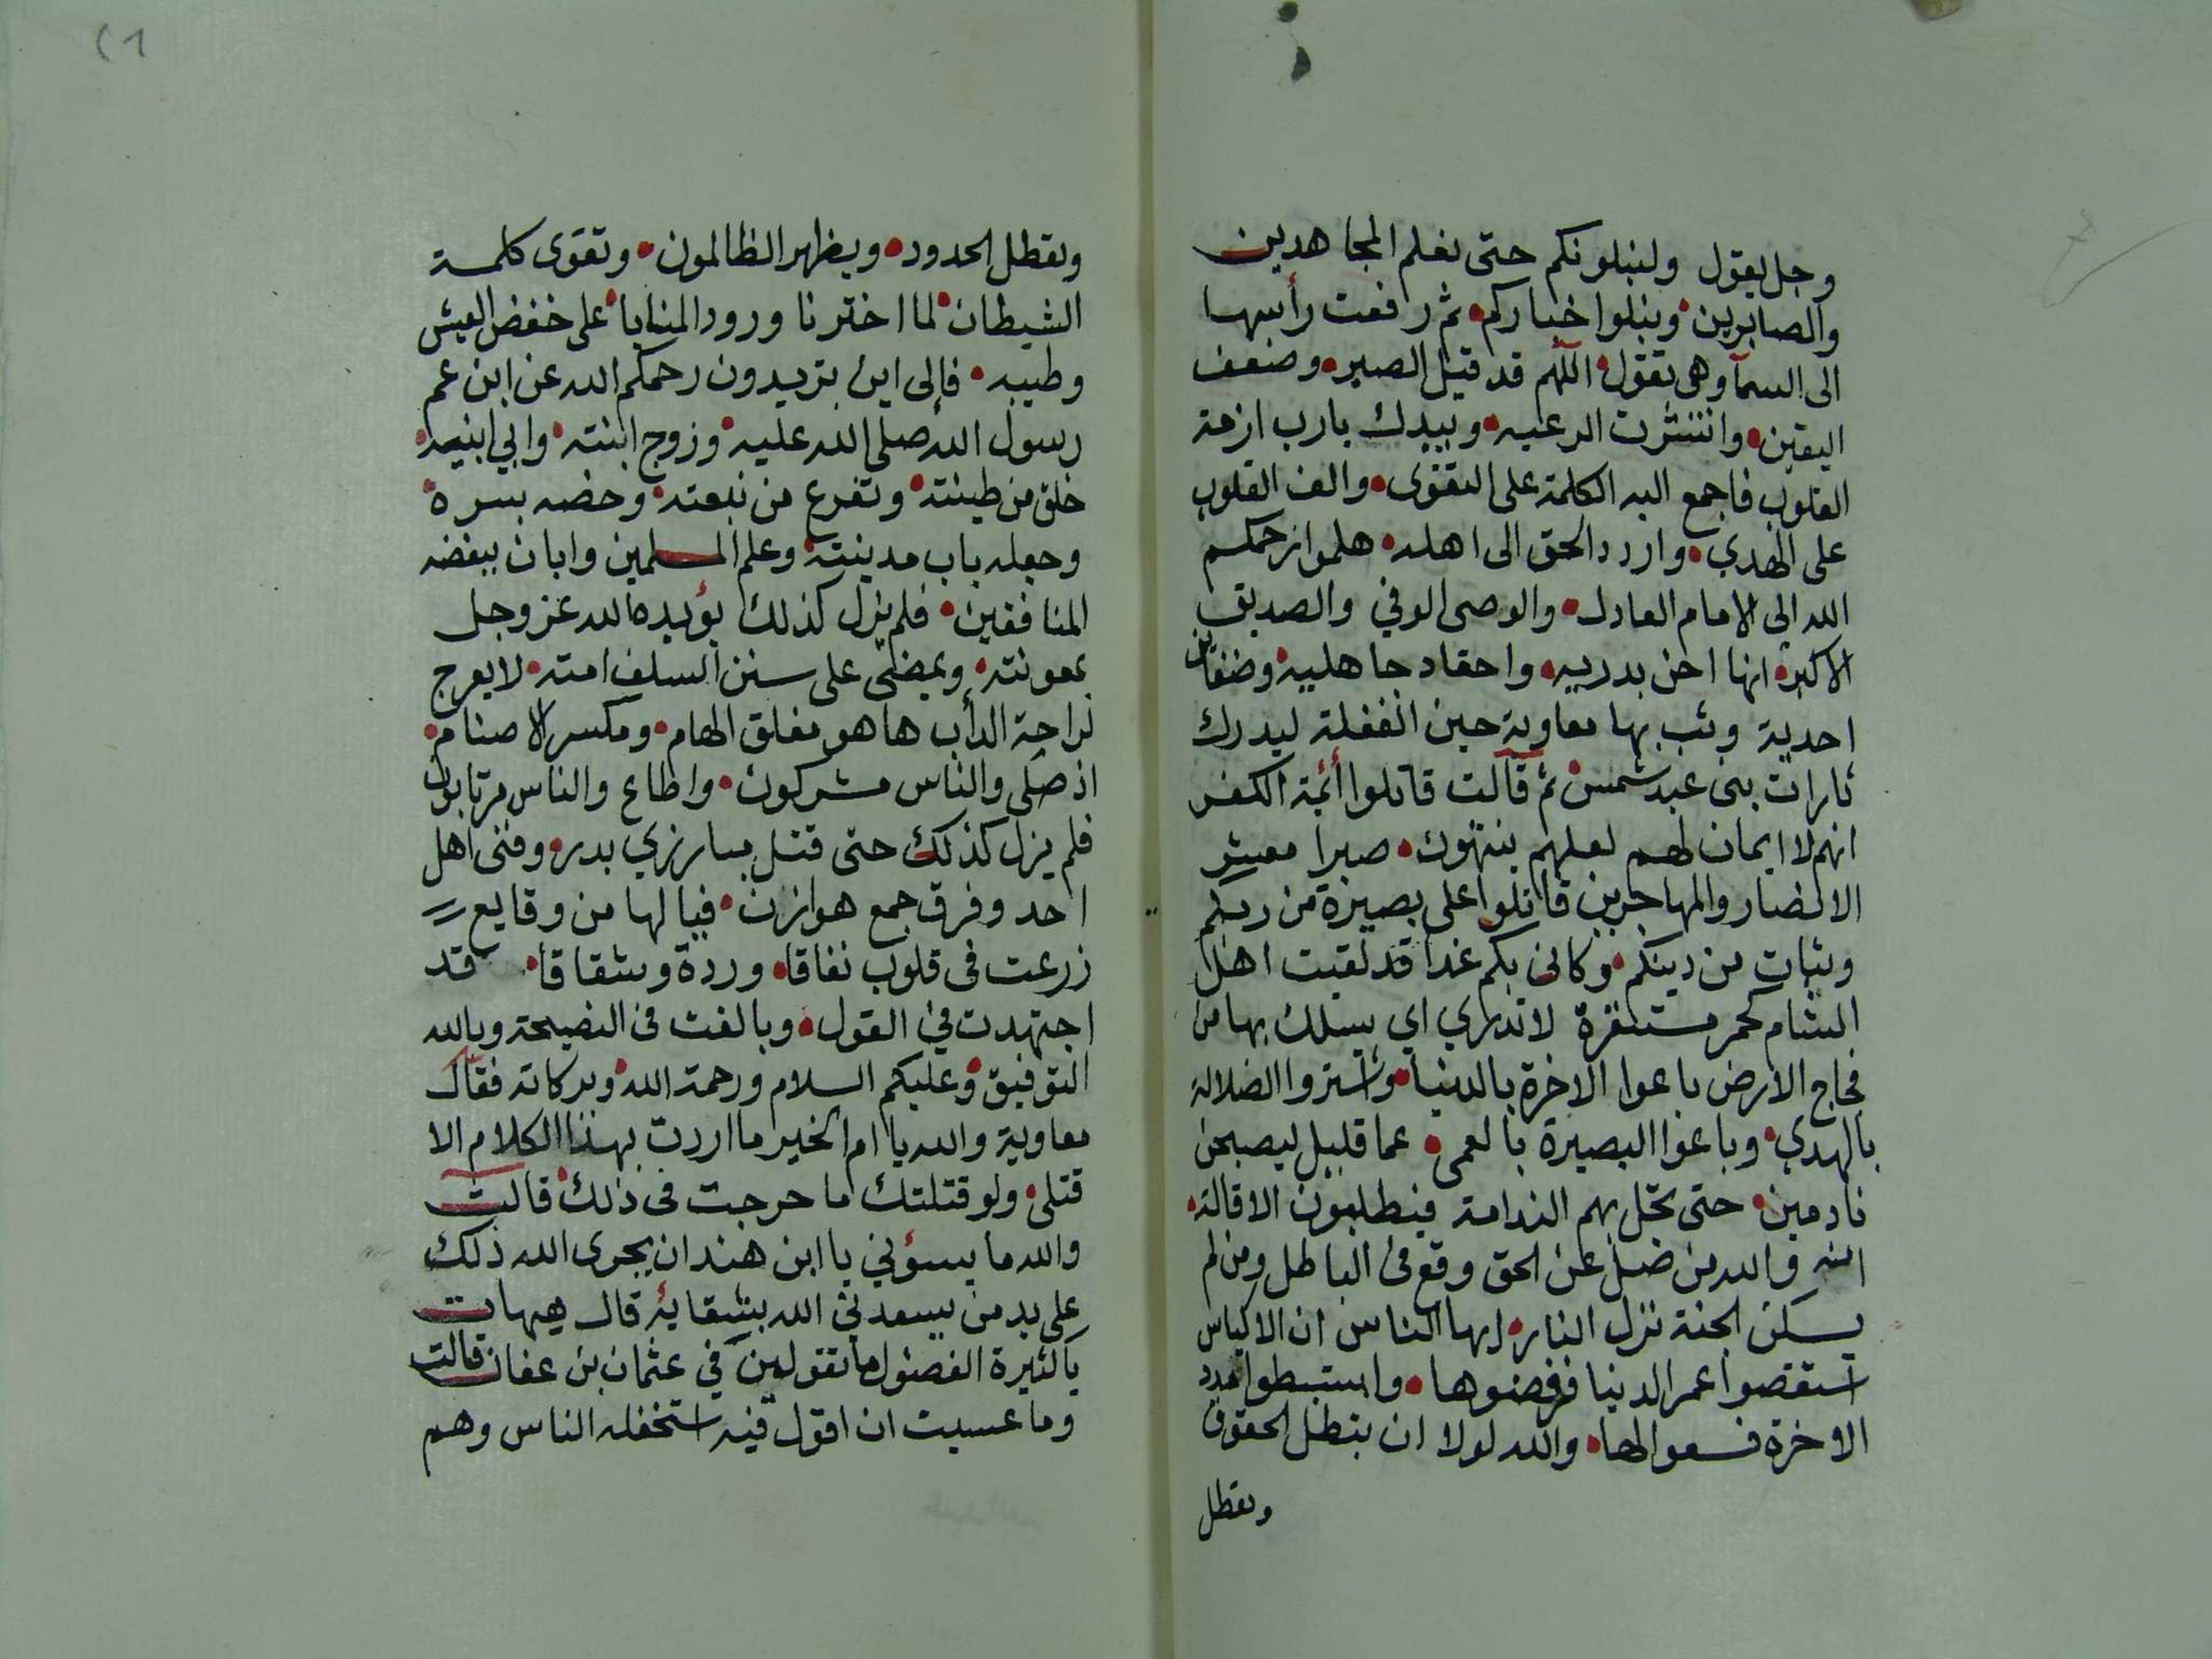 وجل يقول ولنبلونكم حتى نعلم المجاهدين
والصابرين ونبلوا خباركم ثم رفعت رأسها
الى السمآ وهى تقول اللهم قد قيل الصبر وضعف
اليقين وانتشرت الرعيه وبيدك يارب ازمة
القلوب فاجمع اليه الكلمة على التقوى والف القلوب
على الهدي واردد الحق الى اهله هلموا رحمكم
الله الى الامام العادل والوصى الوفي والصديق
الاكبر انها احن بدريه واحقاد جاهليه وضغاين
احدية وثب بها معاوية حين الغفلة ليدرك
ثارات بنى عبد شمس ثم قالت قاتلوا أئمة الكفر
انهم لا ايمان لهم لعلهم ينتهون صبرا معشر
الانصار والمهاجرين قاتلوا على بصيرة من ربكم
وثبات من دينكم وكانى بكم غدا قد لقيت اهل
الشام كحمر مستنفرة لا تدري اي يسلك بها من
فجاج الارض باعوا الاخرة بالدنيا واشتروا الضلالة
بالهدي وباعوا البصيرة بالعمى عما قليل ليصبحن
نادمين حتى تحل بهم الندامة فيطلبون الاقالة
انه والله من ضل عن الحق وقع فى الباطل ومن لم
يسكن الجنة نزل النار ايها الناس ان الاكياس
استقصوا عمر الدنيا فرفضوها واستبطوا مدد
الاخرة فسعوا لها والله لولا ان بتطل الحقوق
وتعطل
وتعطل الحدود ويظهر الظالمون وتقوى كلمة
الشيطان لما اخترنا ورود المنايا على خفض العيش
وطيبه فالى اين تريدون رحمكم الله عن ابن عم
رسول الله صلى الله عليه وزوج ابنته وابي ابنيه
خلق من طينته وتفرع من نبعته وخصه بسره
وجعله باب مدينته وعلم المسلمين وابان ببغضه
المنافقين فلم يزل كذلك يؤيده الله عز وجل
بمعونته ويمضى على سنن السلف امته لا يعرج
لراحة الدأب ها هو مفلق الهام ومكسر الاصنام
اذ صلى والناس مشركون واطاع والناس مرتابون
فلم يزل كذلك حتى قتل مبارزي بدر وفنى اهل
احد وفرق جمع هوازن فيا لها من وقايع
زرعت فى قلوب نفاقا وردة وشقاقا قد
اجتهدت في القول وبالغت فى النصيحة وبالله
التوفيق وعليكم السلام ورحمة الله وبركاته فقال
معاوية والله يا ام الخير ما اردت بهذا الكلام الا
قتلى ولو قتلتك ما حرجت فى ذلك قالت
والله ما يسؤني يا ابن هند ان يجرى الله ذلك
على يد من يسعدني الله بشقايه قال هيهات
يا كثيرة الفضول ما تقولين في عثمان بن عفان قالت
وما عسيت ان اقول فيه استخفله الناس وهم